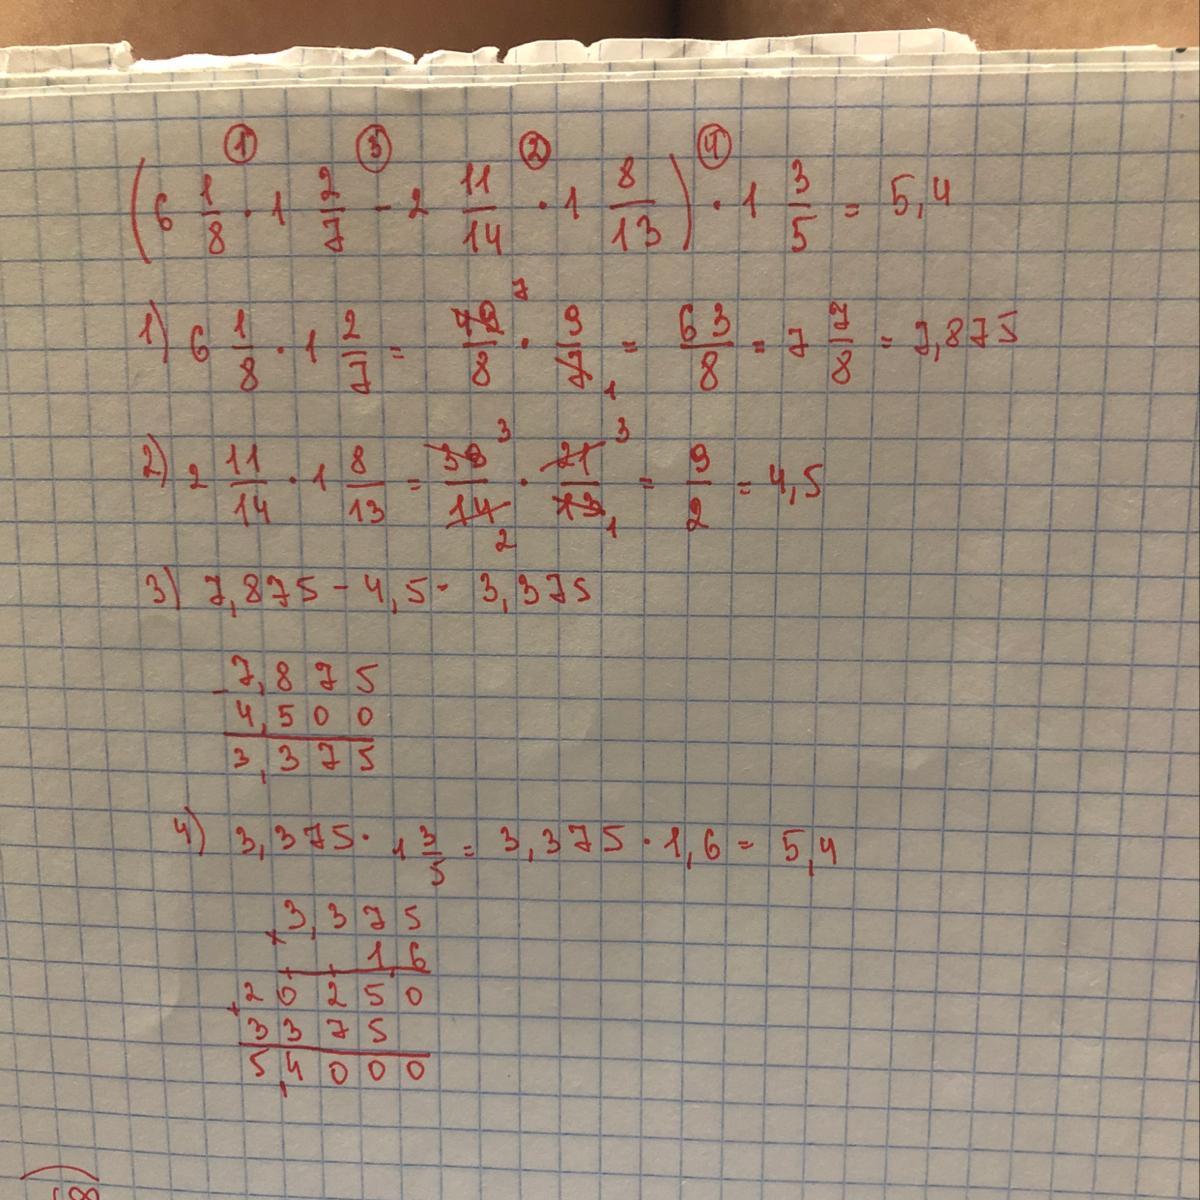 ① ③ ② ④
(6 1/8 · 1 2/7 - 2 11/14 · 1 8/13) · 1 3/5 = 5,4
1) 6 1/8 · 1 2/7 = 49/8 · 9/7 = 63/8 = 7 7/8 = 7,875
7 1
2) 2 11/14 · 1 8/13 = 39/14 · 21/13 = 9/2 = 4,5
3 3 2 1
3) 7,875 - 4,5 = 3,375
- 7,875
4,500
3,375
4) 3,375 · 1 3/5 = 3,375 · 1,6 = 5,4
× 3,375
1,6
+ 20250
3375
5,4000